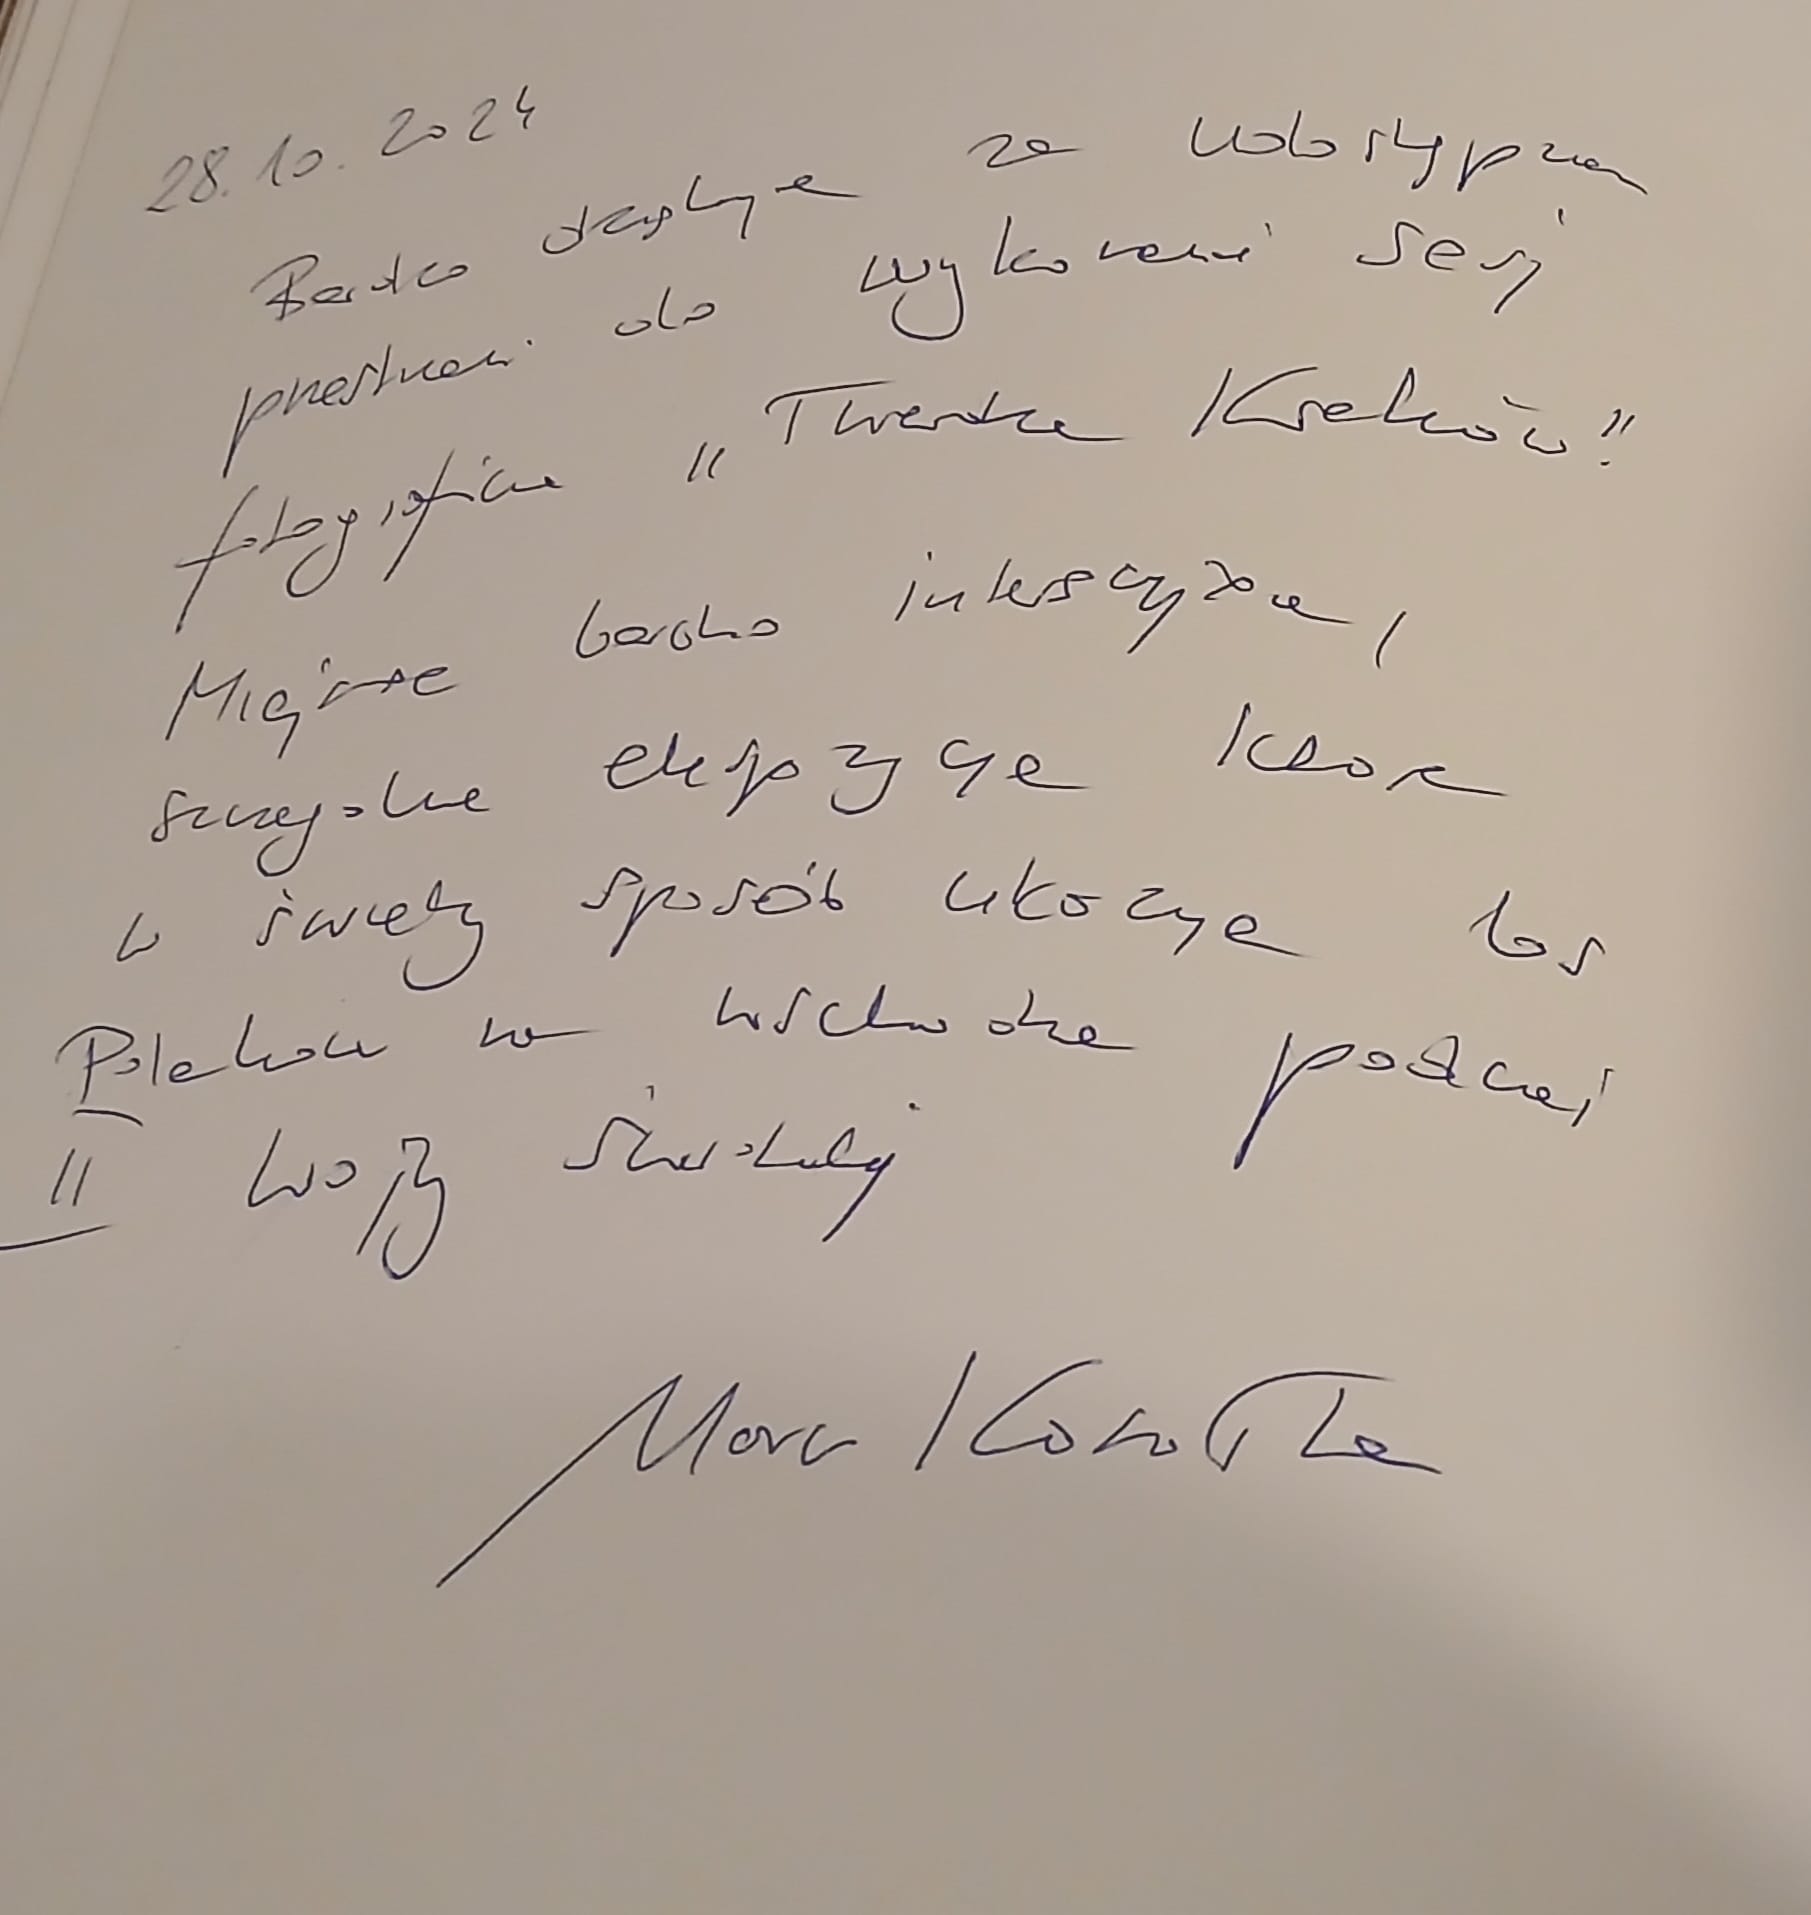 28.10.2024
Bardzo dziękuję za udostępnienie
przestrzeni do wykonania sesji
fotograficznej "Twierdza Kraków".
Miejsce bardzo interesujące,
szczególnie ekspozycje które
w świetny sposób ukazuje los
Polaków na wschodzie podczas
II wojny światowej.